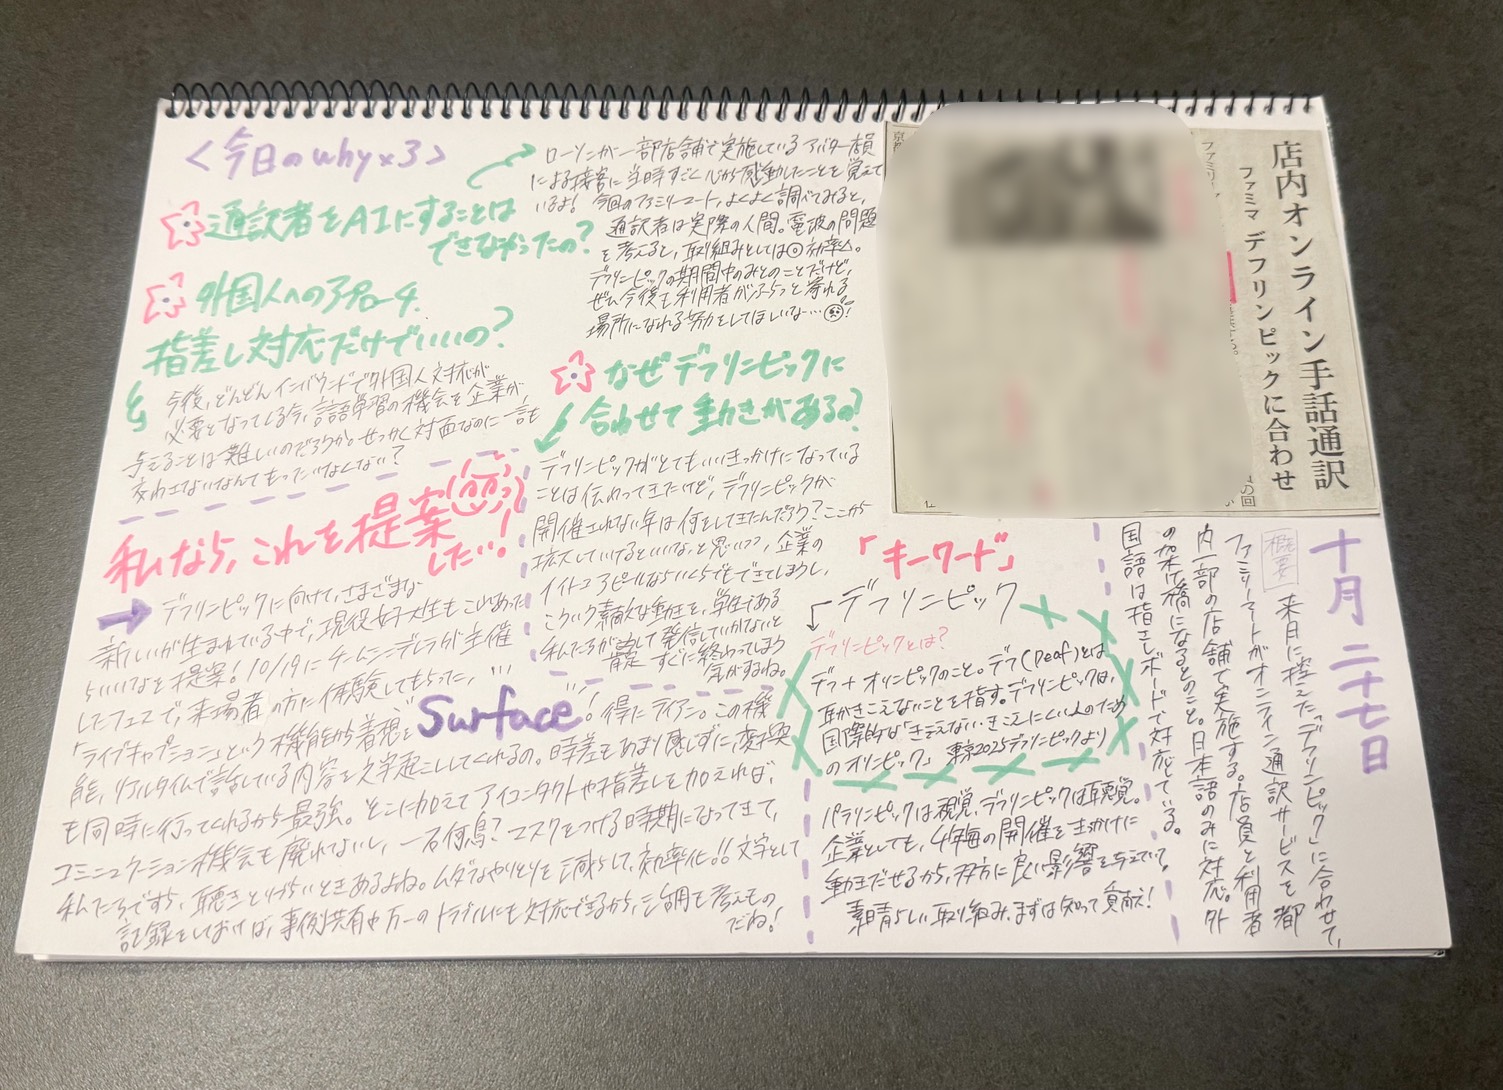 ＜今日のwhy×3＞
通訳者をAIにすることは
できなかったの?
ローソンが一部店舗で実施しているアバター店員
による接客に当時すごく心から感動したことを覚えて
いるよ! 今回のファミリーマート、よくよく調べてみると、
通訳者は実際の人間。電波の問題
を考えると、取り組みとしては◎効率△。
デフリンピックの期間中のみとのことだけど、
ぜひ今後も利用者がふらっと寄れる
場所になれる努力をしてほしいな…!
外国人へのアプローチ、
指差し対応だけでいいの?
今後、どんどんインバウンドで外国人対応が
必要となっている今、言語学習の機会を企業が、
与えることは難しいのだろうか。せっかく対面なのに一言も
交わさないなんてもったいなくない?
なぜデフリンピックに
合わせて動きがあるの?
デフリンピックがとてもいいきっかけになっている
ことは伝わってきたけど、デフリンピックが
開催されない年は何をしてきたんだろう?ここから
拡大していけるといいなと思いつつ、企業の
イイトコアピールならいくらでもできてしまうし、
こういう素敵な動きを、学生である
私たちが率先して発信していかないと
すぐに終わってしまう
気がするね。
私なら、これを提案
したい!
デフリンピックに向けて、さまざまな
新しいが生まれている中で、現役女子大生もこんなのあった
らいいなを提案! 10/19にチームシンデレラが主催
したフェスで、来場者の方に体験してもらった、
「ライブキャプション」という機能から着想を Surface! 得にティアン。この機
能、リアルタイムで話している内容を文字起こししてくれるの。時差もあまり感じずに変換
も同時に行ってくれるから最強。そこに加えてアイコンタクトや指差しを加えれば、
コミュニケーション機会も廃れないし、一石何鳥?マスクをつける時期になってきて、
私たちですら、聴きとりづらいときあるよね。ムダなやりとりを減らして、効率化!!文字として
記録をしておけば、事例共有や万一のトラブルにも対応できるから、
考えもの
だね!
「キーワード」
デフリンピック
デフリンピックとは?
デフ+オリンピックのこと。デフ(Deaf)とは
耳がきこえないことを指す。デフリンピックは、
国際的な「きこえない・きこえにくい人のため
のオリンピック」 東京2025デフリンピックより
パラリンピックは視覚、デフリンピックは聴覚。
企業としても、4年毎の開催をきっかけに
動きだせるから、双方に良い影響を与えていて
素晴らしい取り組み。まずは知って貢献!
店内オンライン手話通訳
ファミマ デフリンピックに合わせ
十月二十七日
概要 来月に控えた「デフリンピック」に合わせて、
ファミリーマートがオンライン通訳サービスを都
内一部の店舗で実施する。店員と利用者
の架け橋になるとのこと。日本語のみに対応。外
国語は指さしボードで対応している。